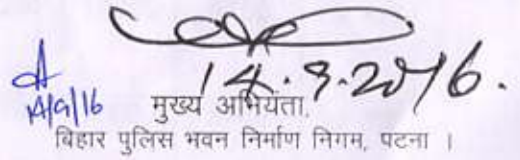 14.9.2016.
14/9/16 मुख्य अभियंता,
बिहार पुलिस भवन निर्माण निगम, पटना ।